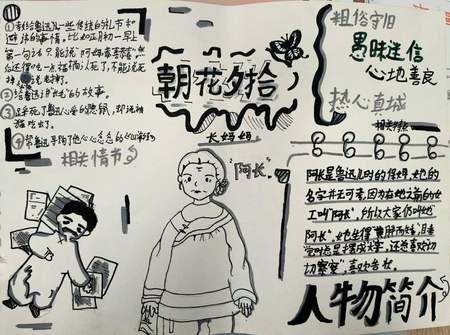 ①告诉鲁迅一些传统的礼节和
避讳的事情。比如正月初一早上
第一句话只能说"阿妈,恭喜恭喜",然
后还得吃一点福橘;人死了,不能说死
掉,说"老掉了"。
②给鲁迅讲"长毛"的故事。
③踩死了鲁迅心爱的隐鼠,却说被
猫吃了。
④
相关情节
朝花夕拾
长妈妈
"阿长"
粗俗守旧
愚昧迷信
心地善良
热心真城
相关
阿长是鲁迅儿时的保姆,她的
名字并无可考,因为在她之前的女
工叫"阿长",所以大家仍叫她
"阿长"。她生得"黄胖而矮",且
总是摆成"大"字,还总喜欢切
切察察,喜欢告状。
人物简介